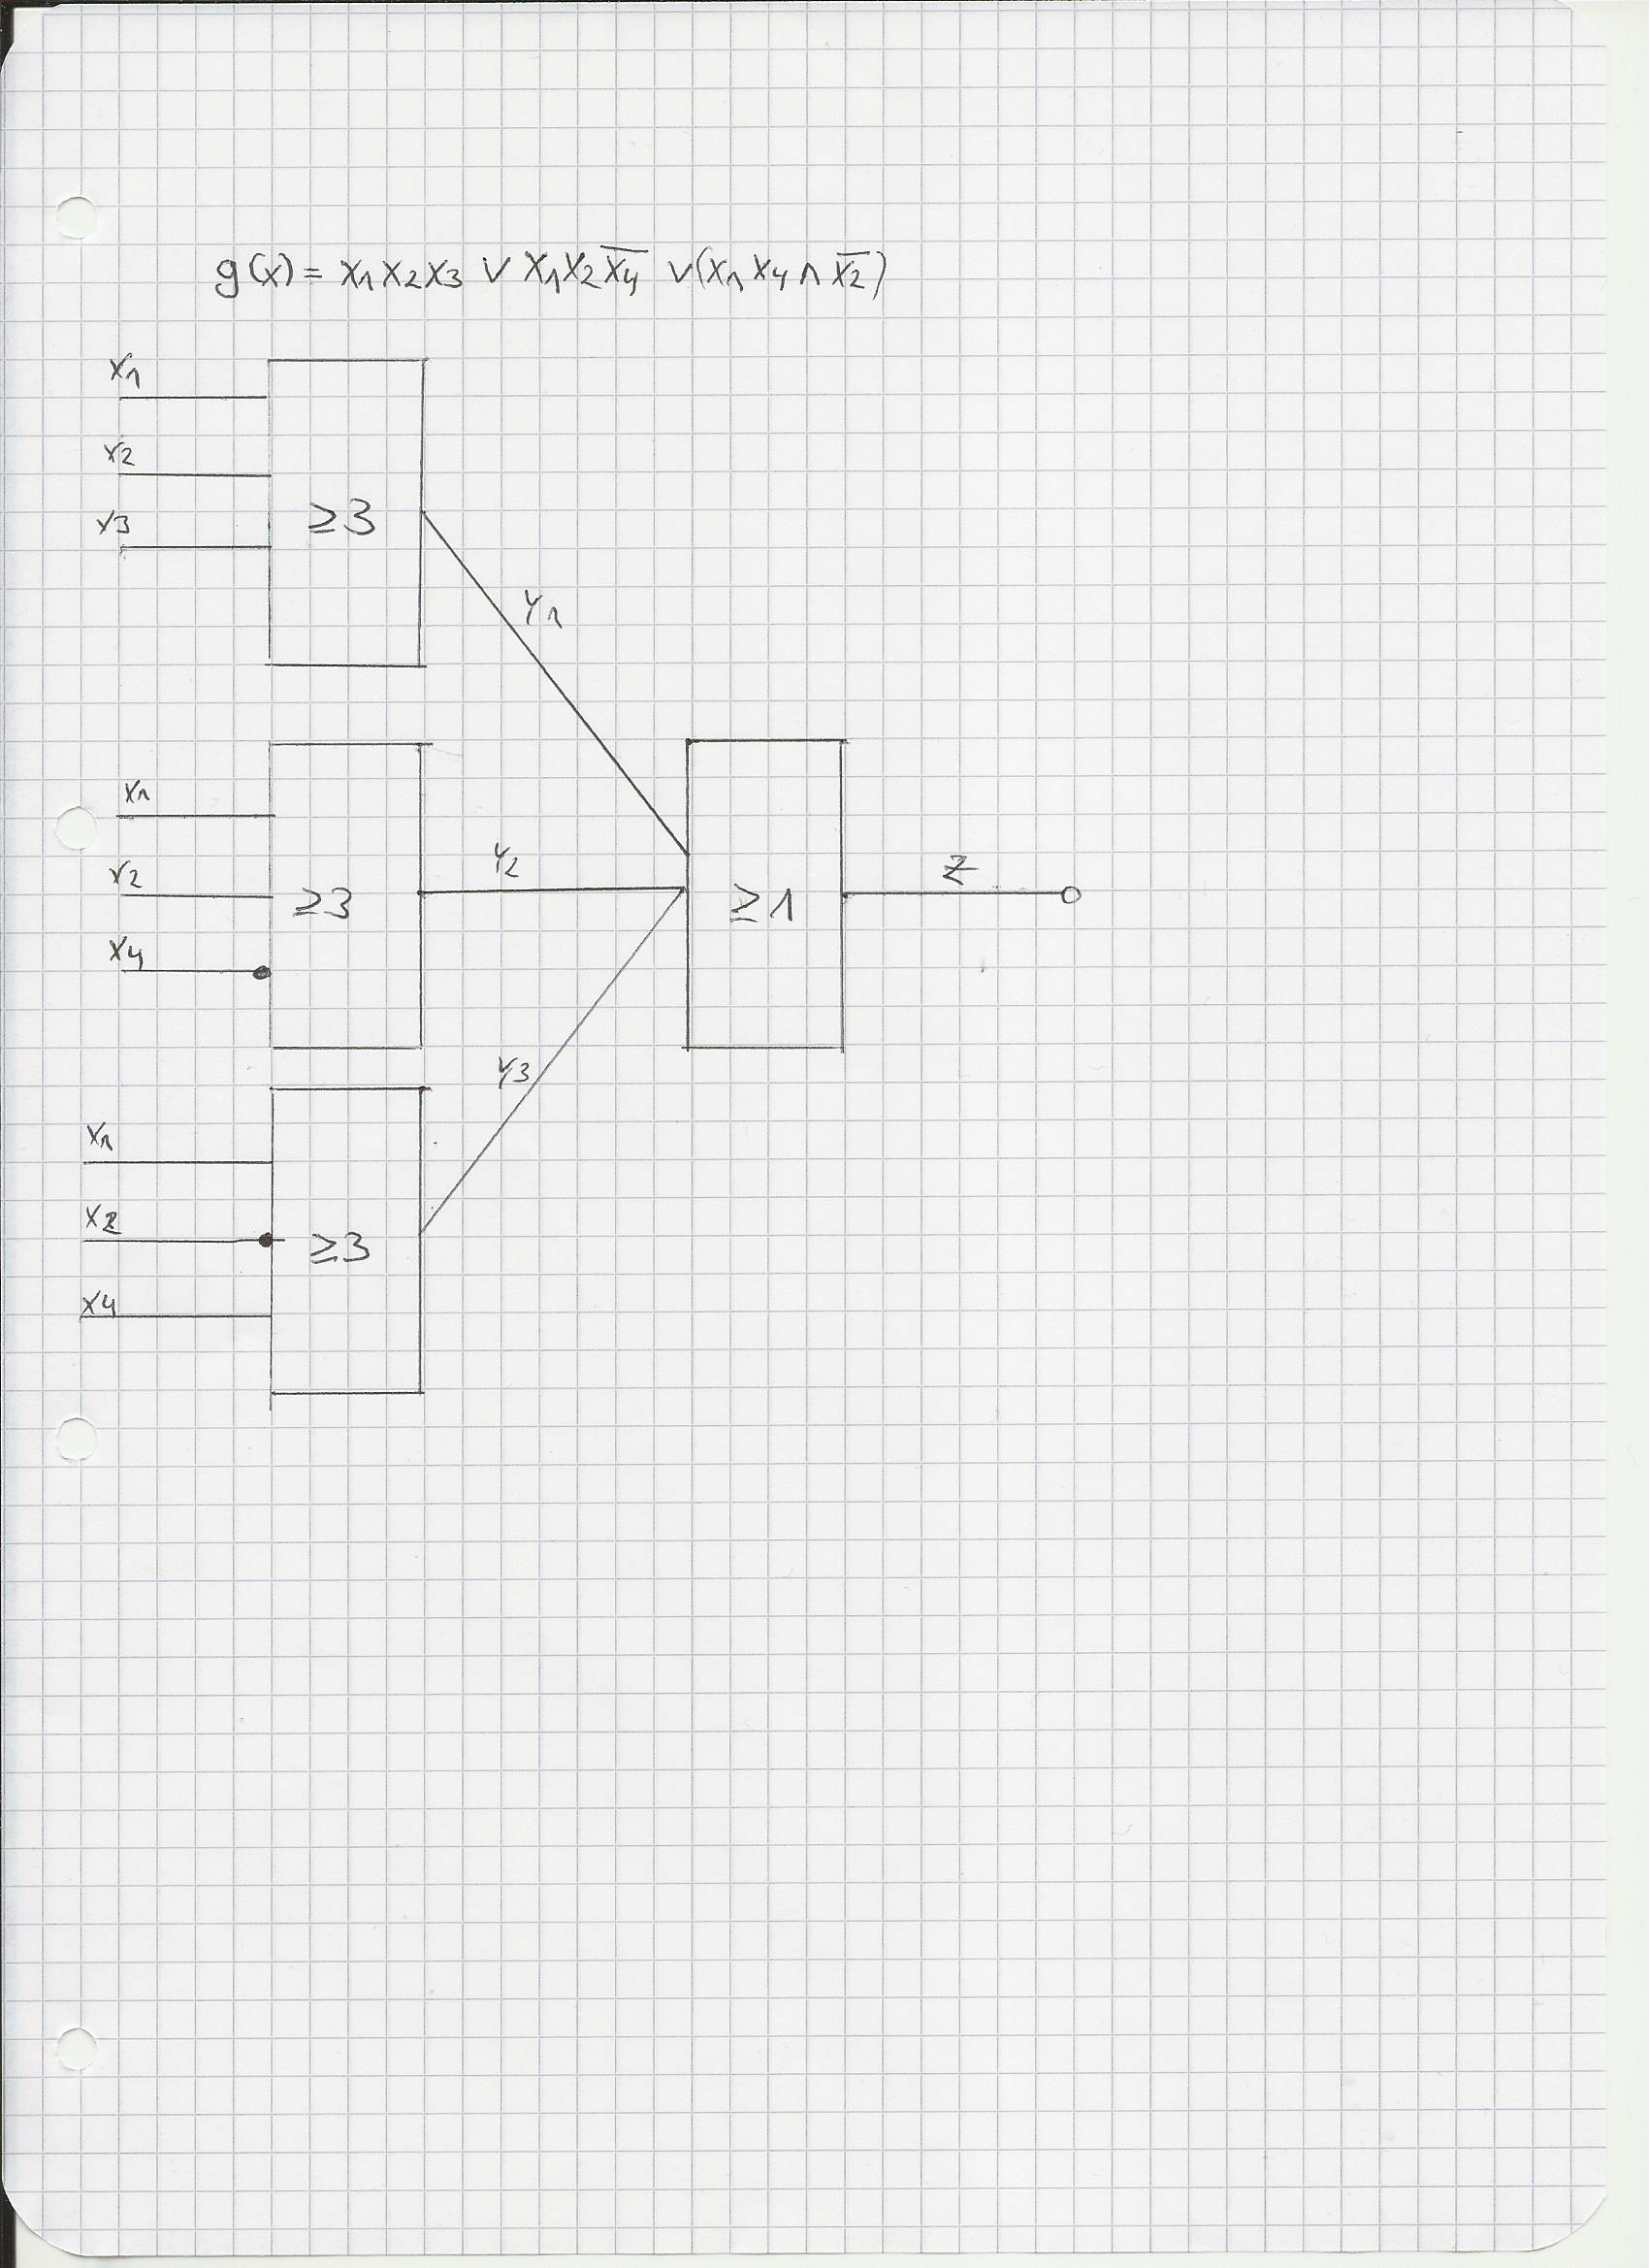 g(x) = x₁x₂x₃ ∨ x₁x₂x̅₄ ∨ (x₁x₄ ∧ x̅₂)
x₁
x₂
x₃
≥3
y₁
x₁
x₂
x₄
≥3
y₂
≥1
z
y₃
x₁
x₂
x₄
≥3